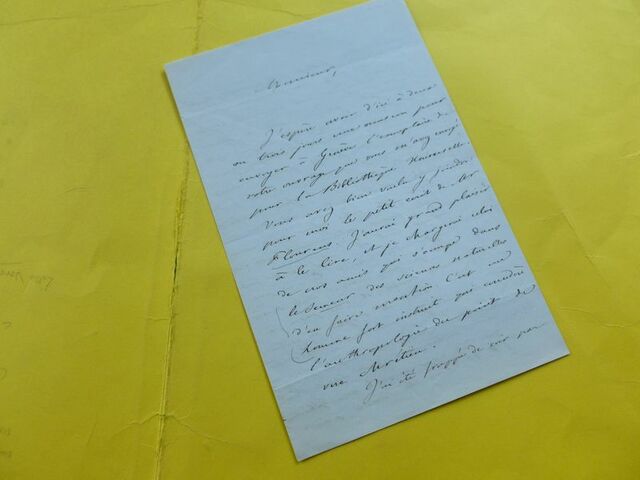 Monsieur,
J'espère avoir d'ici à deux
ou trois jours une occasion pour
envoyer à Genève l'exemplaire de
votre ouvrage que vous m'avez envoyé
pour la Bibliothèque Universelle.
Vous avez bien voulu y joindre
pour moi le petit écrit de Mr
Flourens. J'aurai grand plaisir
à le lire, et je chargerai
de mes amis qui s'occupe dans
le Semeur des sciences naturelles
d'en faire mention. C'est un
homme fort instruit qui considère
l'anthropologie du point de
vue chrétien.
J'ai été frappé de voir par